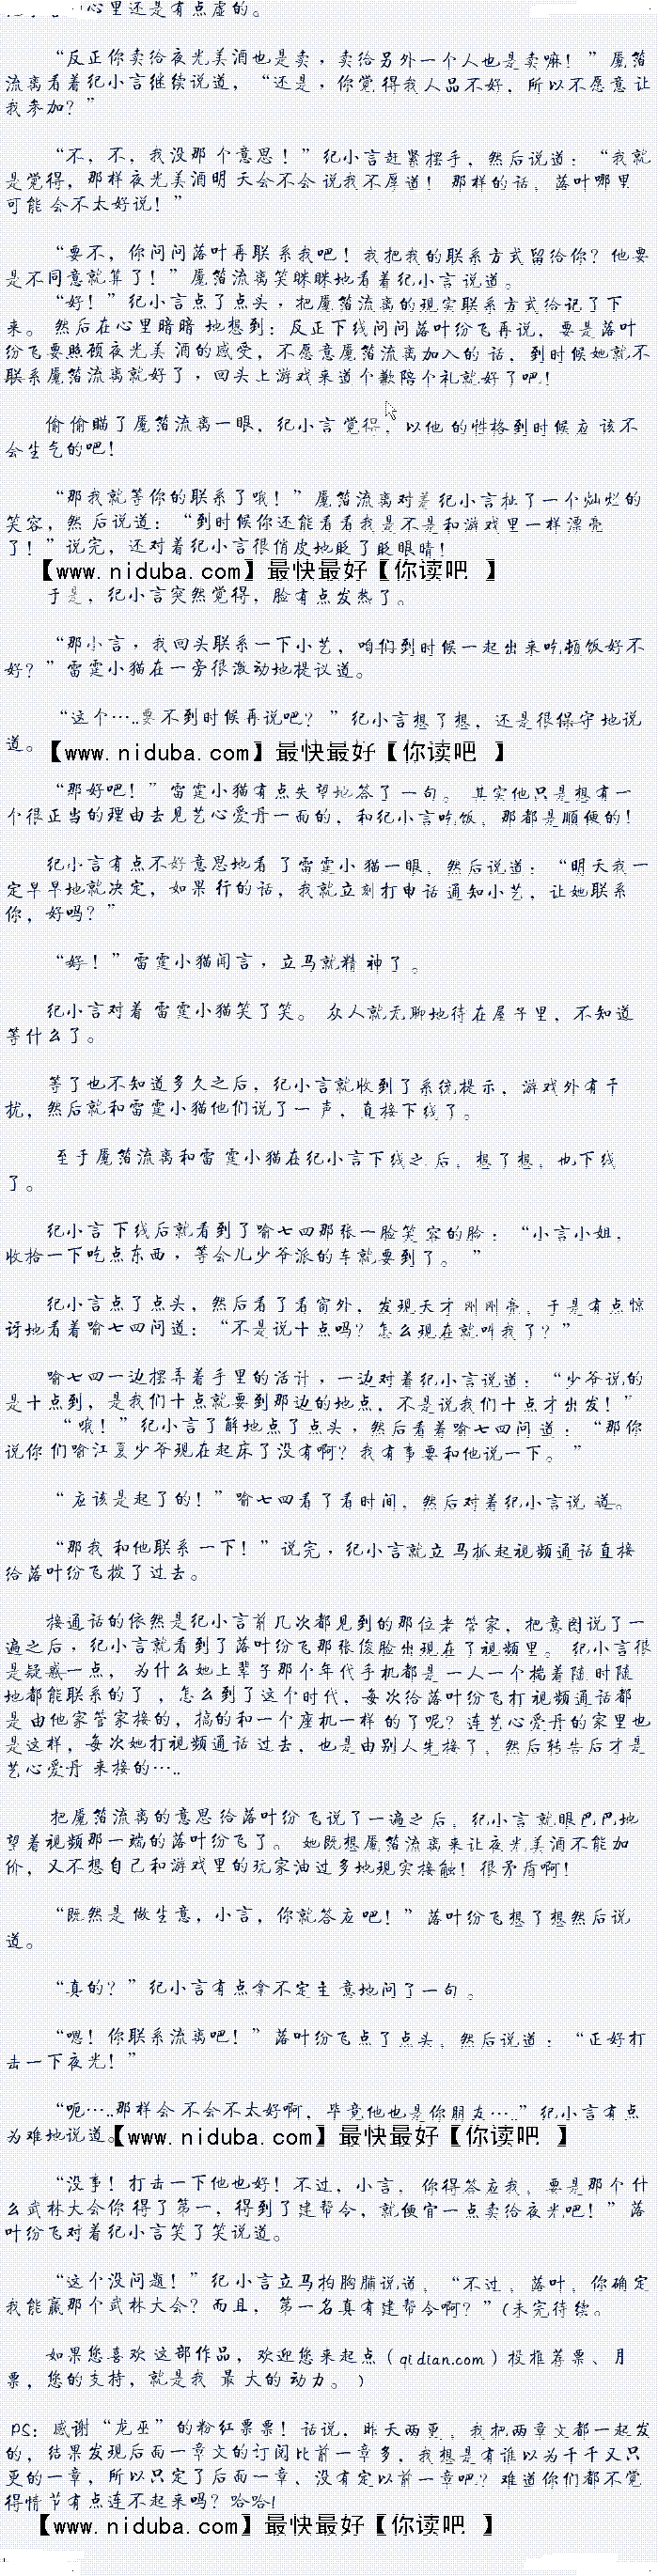 心里还是有点虚的。
“反正你卖给夜光美酒也是卖，卖给另外一个人也是卖嘛！”魇箔
流离看着纪小言继续说道，“还是，你觉得我人品不好，所以不愿意让
我参加？”
“不，不，我没那个意思！”纪小言赶紧摆手，然后说道：“我就
是觉得，那样夜光美酒明天会不会说我不厚道！那样的话，落叶哪里
可能会不太好说！”
“要不，你问问落叶再联系我吧！我把我的联系方式留给你？他要
是不同意就算了！”魇箔流离笑眯眯地看着纪小言说道。
“好！”纪小言点了点头，把魇箔流离的现实联系方式给记了下
来。然后在心里暗暗地想到：反正下线问问落叶纷飞再说，要是落叶
纷飞要照顾夜光美酒的感受，不愿意魇箔流离加入的话，到时候她就不
联系魇箔流离就好了，回头上游戏来道个歉陪个礼就好了吧！
偷偷瞄了魇箔流离一眼，纪小言觉得，以他的性格到时候应该不
会生气的吧！
“那我就等你的联系了哦！”魇箔流离对着纪小言扯了一个灿烂的
笑容，然后说道：“到时候你还能看看我是不是和游戏里一样漂亮
了！”说完，还对着纪小言很俏皮地眨了眨眼睛！
【www.niduba.com】最快最好【你读吧 】
于是，纪小言突然觉得，脸有点发热了。
“那小言，我回头联系一下小艺，咱们到时候一起出来吃顿饭好不
好？”雷霆小猫在一旁很激动地提议道。
“这个…..要不到时候再说吧？”纪小言想了想，还是很保守地说
道。【www.niduba.com】最快最好【你读吧 】
“那好吧！”雷霆小猫有点失望地答了一句。其实他只是想有一
个很正当的理由去见艺心爱丹一面的，和纪小言吃饭，那都是顺便的！
纪小言有点不好意思地看了雷霆小猫一眼，然后说道：“明天我一
定早早地就决定，如果行的话，我就立刻打电话通知小艺，让她联系
你，好吗？”
“好！”雷霆小猫闻言，立马就精神了。
纪小言对着雷霆小猫笑了笑。众人就无聊地待在屋子里，不知道
等什么了。
等了也不知道多久之后，纪小言就收到了系统提示，游戏外有干
扰，然后就和雷霆小猫他们说了一声，直接下线了。
至于魇箔流离和雷霆小猫在纪小言下线之后，想了想，也下线
了。
纪小言下线后就看到了喻七四那张一脸笑容的脸：“小言小姐，
收拾一下吃点东西，等会儿少爷派的车就要到了。”
纪小言点了点头，然后看了看窗外，发现天才刚刚亮，于是有点惊
讶地看着喻七四问道：“不是说十点吗？怎么现在就叫我了？”
喻七四一边摆弄着手里的活计，一边对着纪小言说道：“少爷说的
是十点到，是我们十点就要到那边的地点，不是说我们十点才出发！”
“哦！”纪小言了解地点了点头，然后看着喻七四问道：“那你
说你们喻江夏少爷现在起床了没有啊？我有事要和他说一下。”
“应该是起了的！”喻七四看了看时间，然后对着纪小言说道。
“那我和他联系一下！”说完，纪小言就立马抓起视频通话直接
给落叶纷飞拨了过去。
接通话的依然是纪小言前几次都见到的那位老管家，把意图说了一
遍之后，纪小言就看到了落叶纷飞那张俊脸出现在了视频里。纪小言很
是疑惑一点，为什么她上辈子那个年代手机都是一人一个揣着随时随
地都能联系的了，怎么到了这个时代，每次给落叶纷飞打视频通话都
是由他家管家接的，搞的和一个座机一样的了呢？连艺心爱丹的家里也
是这样，每次她打视频通话过去，也是由别人先接了，然后转告后才是
艺心爱丹来接的…..
把魇箔流离的意思给落叶纷飞说了一遍之后，纪小言就眼巴巴地
望着视频那一端的落叶纷飞了。她既想魇箔流离来让夜光美酒不能加
价，又不想自己和游戏里的玩家油过多地现实接触！很矛盾啊！
“既然是做生意，小言，你就答应吧！”落叶纷飞想了想然后说
道。
“真的？”纪小言有点拿不定主意地问了一句。
“嗯！你联系流离吧！”落叶纷飞点了点头，然后说道：“正好打
击一下夜光！”
“呃…..那样会不会不太好啊，毕竟他也是你朋友…..”纪小言有点
为难地说道。【www.niduba.com】最快最好【你读吧 】
“没事！打击一下他也好！不过，小言，你得答应我，要是那个什
么武林大会你得了第一，得到了建帮令，就便宜一点卖给夜光吧！”落
叶纷飞对着纪小言笑了笑说道。
“这个没问题！”纪小言立马拍胸脯说道，“不过，落叶，你确定
我能赢那个武林大会？而且，第一名真有建帮令啊？”(未完待续。
如果您喜欢这部作品，欢迎您来起点（qidian.com）投推荐票、月
票，您的支持，就是我最大的动力。）
PS：感谢“龙巫”的粉红票票！话说，昨天两更，我把两章文都一起发
的，结果发现后面一章文的订阅比前一章多，我想是有谁以为千千又只
更的一章，所以只定了后面一章、没有定以前一章吧？难道你们都不觉
得情节有点连不起来吗？哈哈！
【www.niduba.com】最快最好【你读吧 】